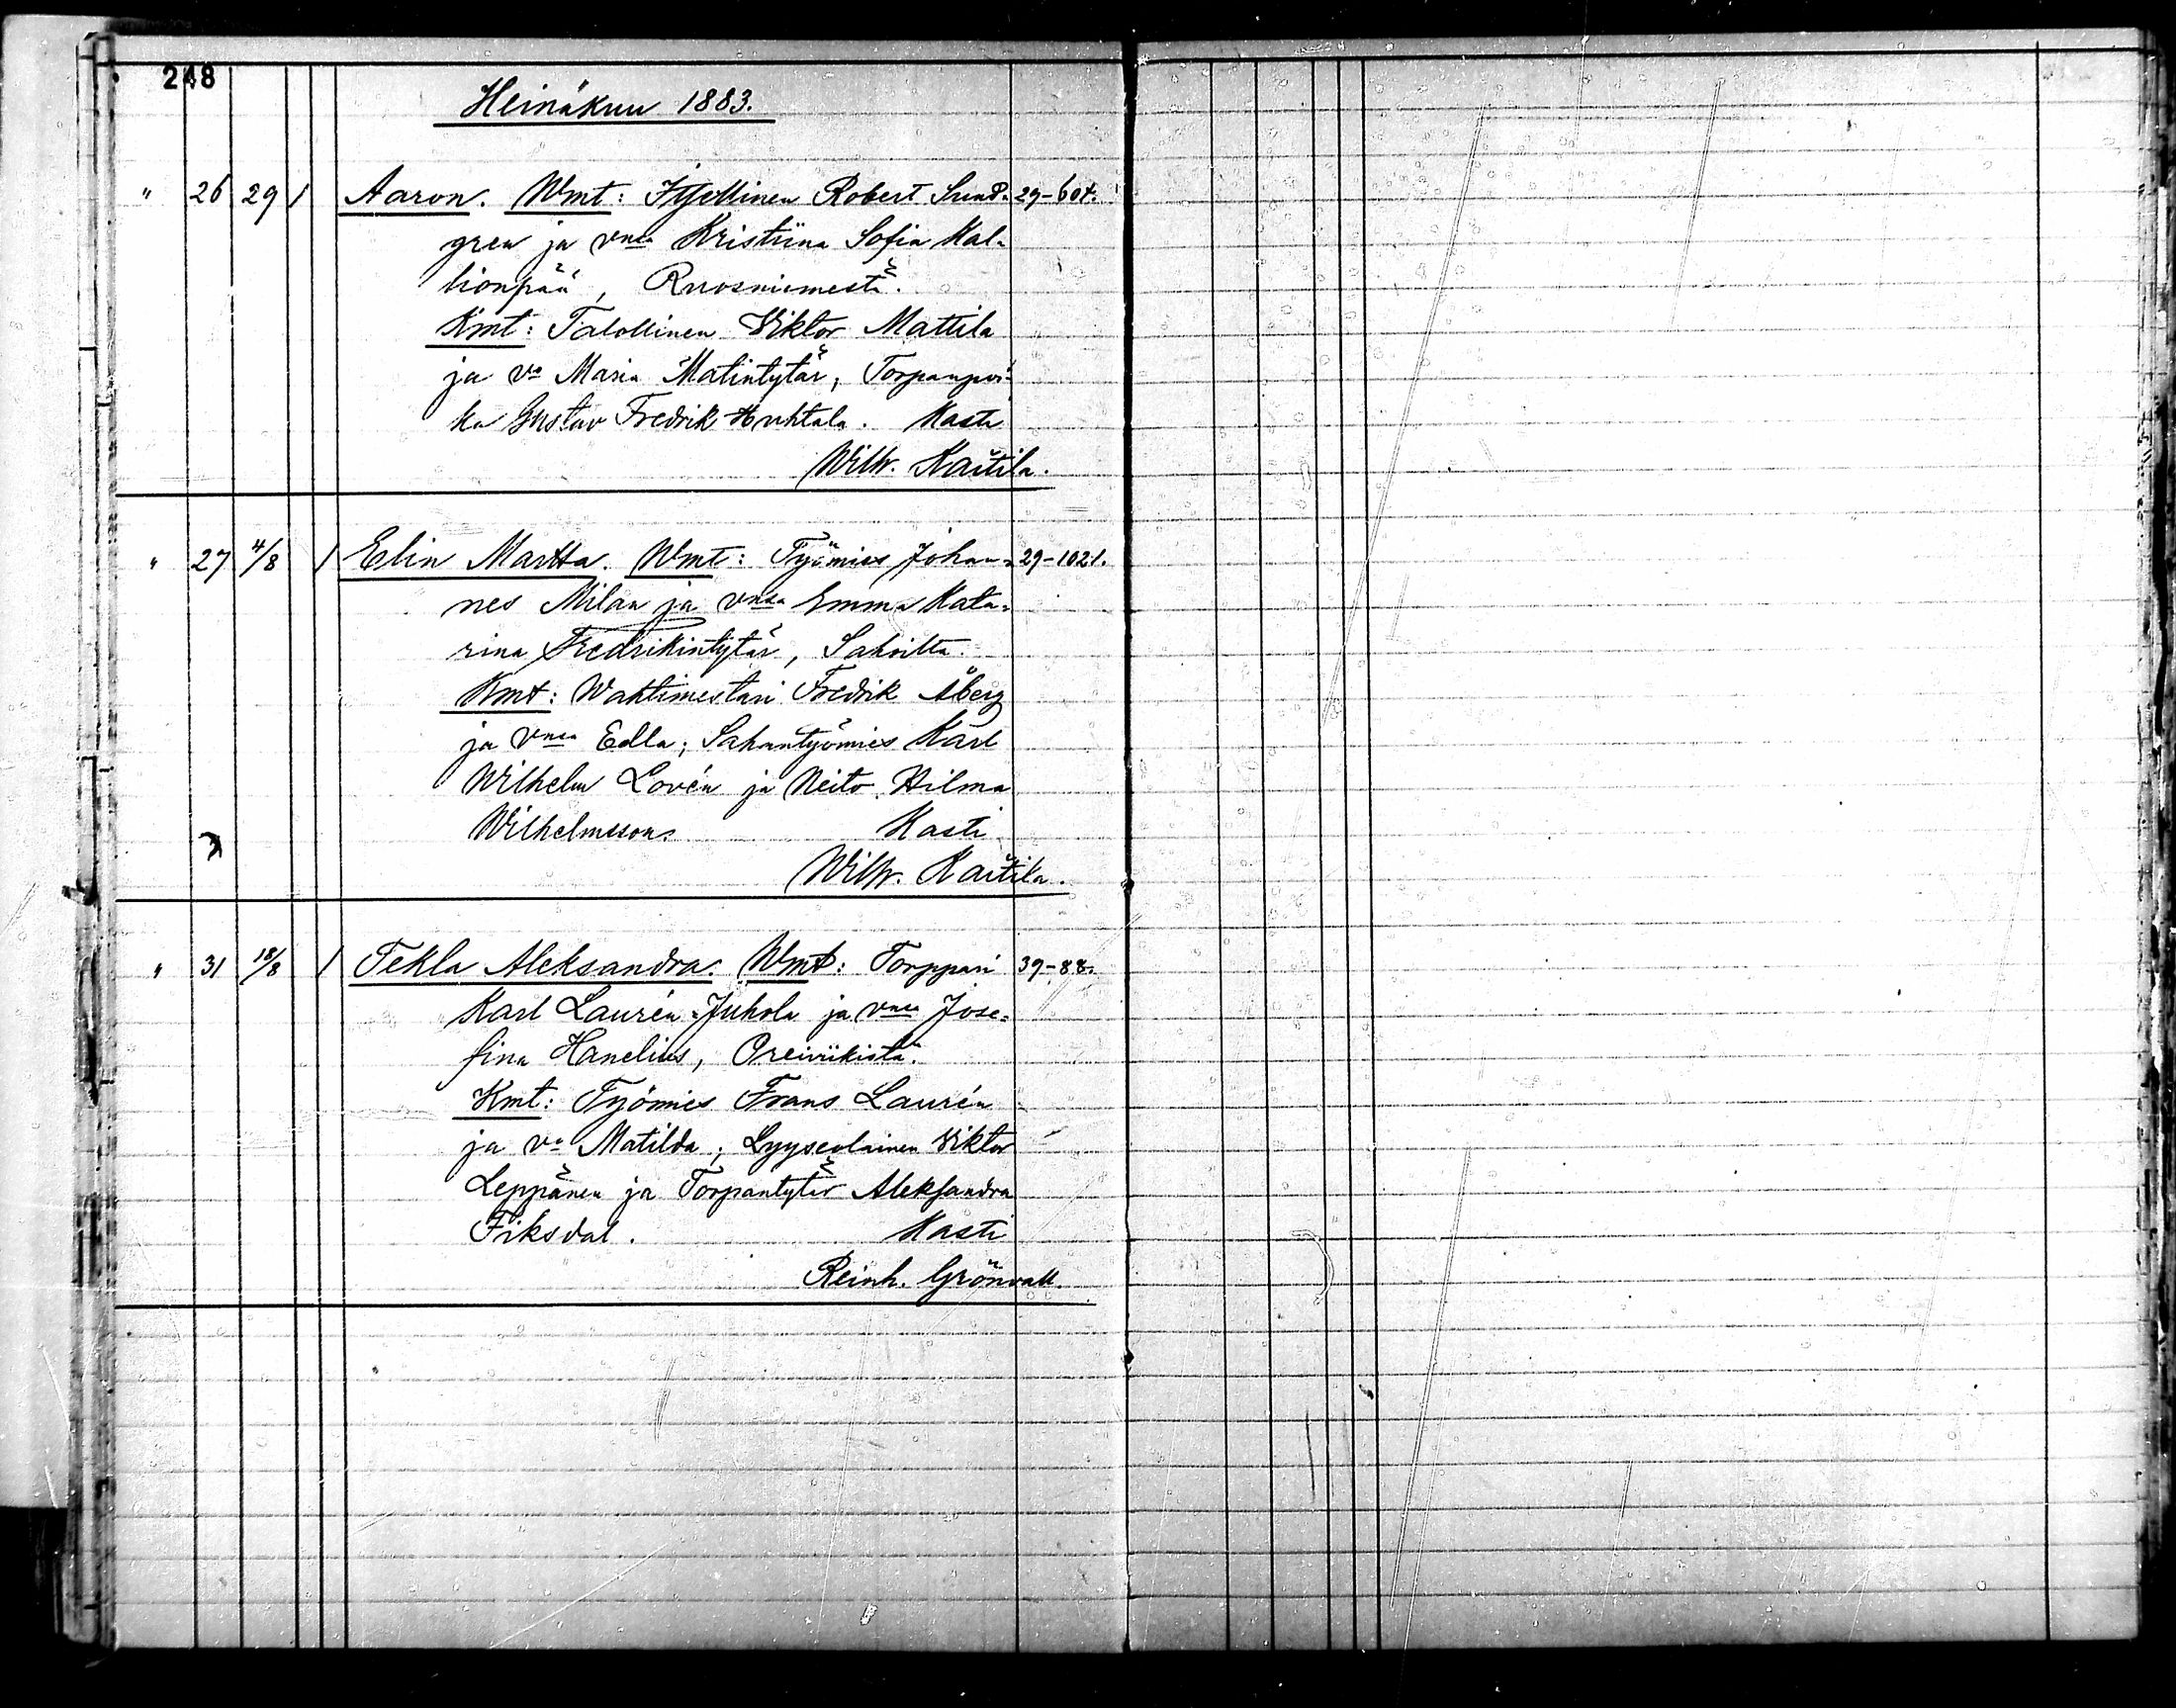 248
Heinäkuu 1883.
" 26 29 1 Aaron. Wmt: Itsellinen Robert Sund= 29-604.
gren ja vnsa Kristiina Sofia Kal=
lionpää, Ruosniemestä.
Kmt: Talollinen Viktor Mattila
ja va Maria Matintytär; Torpanpoi=
ka Gustav Fredrik Huhtala. Kasti
Wilh. Kaitila.
" 27 4/8 1 Elin Martta. Wmt: Työmies Johan= 29-1021.
nes Milan ja vnsa Emma Kata=
rina Fredrikintytär, Sahoilta.
Kmt: Wahtimestari Fredrik Åberg
ja vnsa Edla; Sahantyömies Karl
Wilhelm Lovén ja Neito Hilma
Wilhelmsson. Kasti
Wilh. Kaitila.
" 31 18/8 1 Tekla Aleksandra. Wmt: Torppari 39-88.
Karl Laurén-Juhola ja vnsa Jose=
fina Hanelius, Oreiviikistä.
Kmt: Työmies Frans Laurén
ja va Matilda; Lyyseolainen Viktor
Leppänen ja Torpantytär Aleksandra
Fiksdal. Kasti
Reinh. Grönvall.